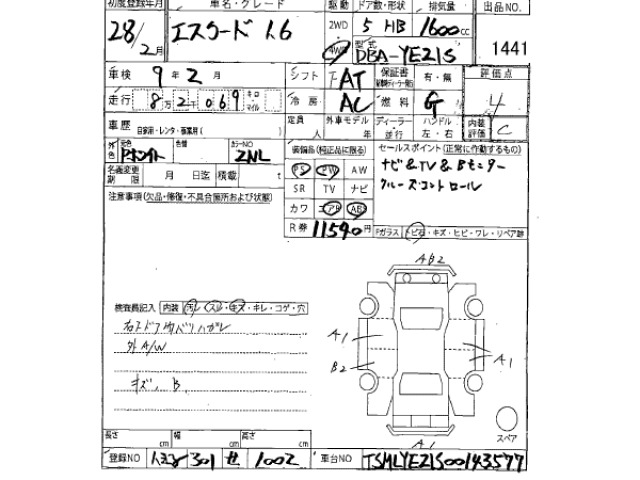 初度登録年月 車名・グレード 駆動 ドア数・形状 排気量 出品NO.
28/2月 エスクード 1.6 2WD 4WD 5 HB 1600cc
型式 DBA-YE21S 1441
車検 9年2月 シフト AT 保証書 有・無 評価点 4
走行 8万2千069 キロ・マイル 冷房 AC 燃料 G 内装評価 C
車歴 自家用・レンタ・事業用( ) 定員 人 外車モデル 年 ディーラー・並行 ハンドル 左・右
外色 元色 Pホワイト 色替 カラーNO ZNL 装備品(純正品に限る) セールスポイント(正常に作動するもの)
PS PW AW ナビ&TV&Bモニター
名義変更期限 月 日迄 積載 t SR TV ナビ クルーズコントロール
注意事項(欠品・修復・不具合箇所および状態) カワ エアB AB
R券 11590円 Fガラス トビ石・キズ・ヒビ・ワレ・リペア跡
AB2
検査員記入 内装 ヨゴレ・スレ・キズ・キレ・コゲ・穴
A1
外A/W
B2 A1
キズ、B
スペア
長さ cm 幅 cm 高さ cm A1
登録NO 301 せ 1002 車台NO TSMLYE21S00143577